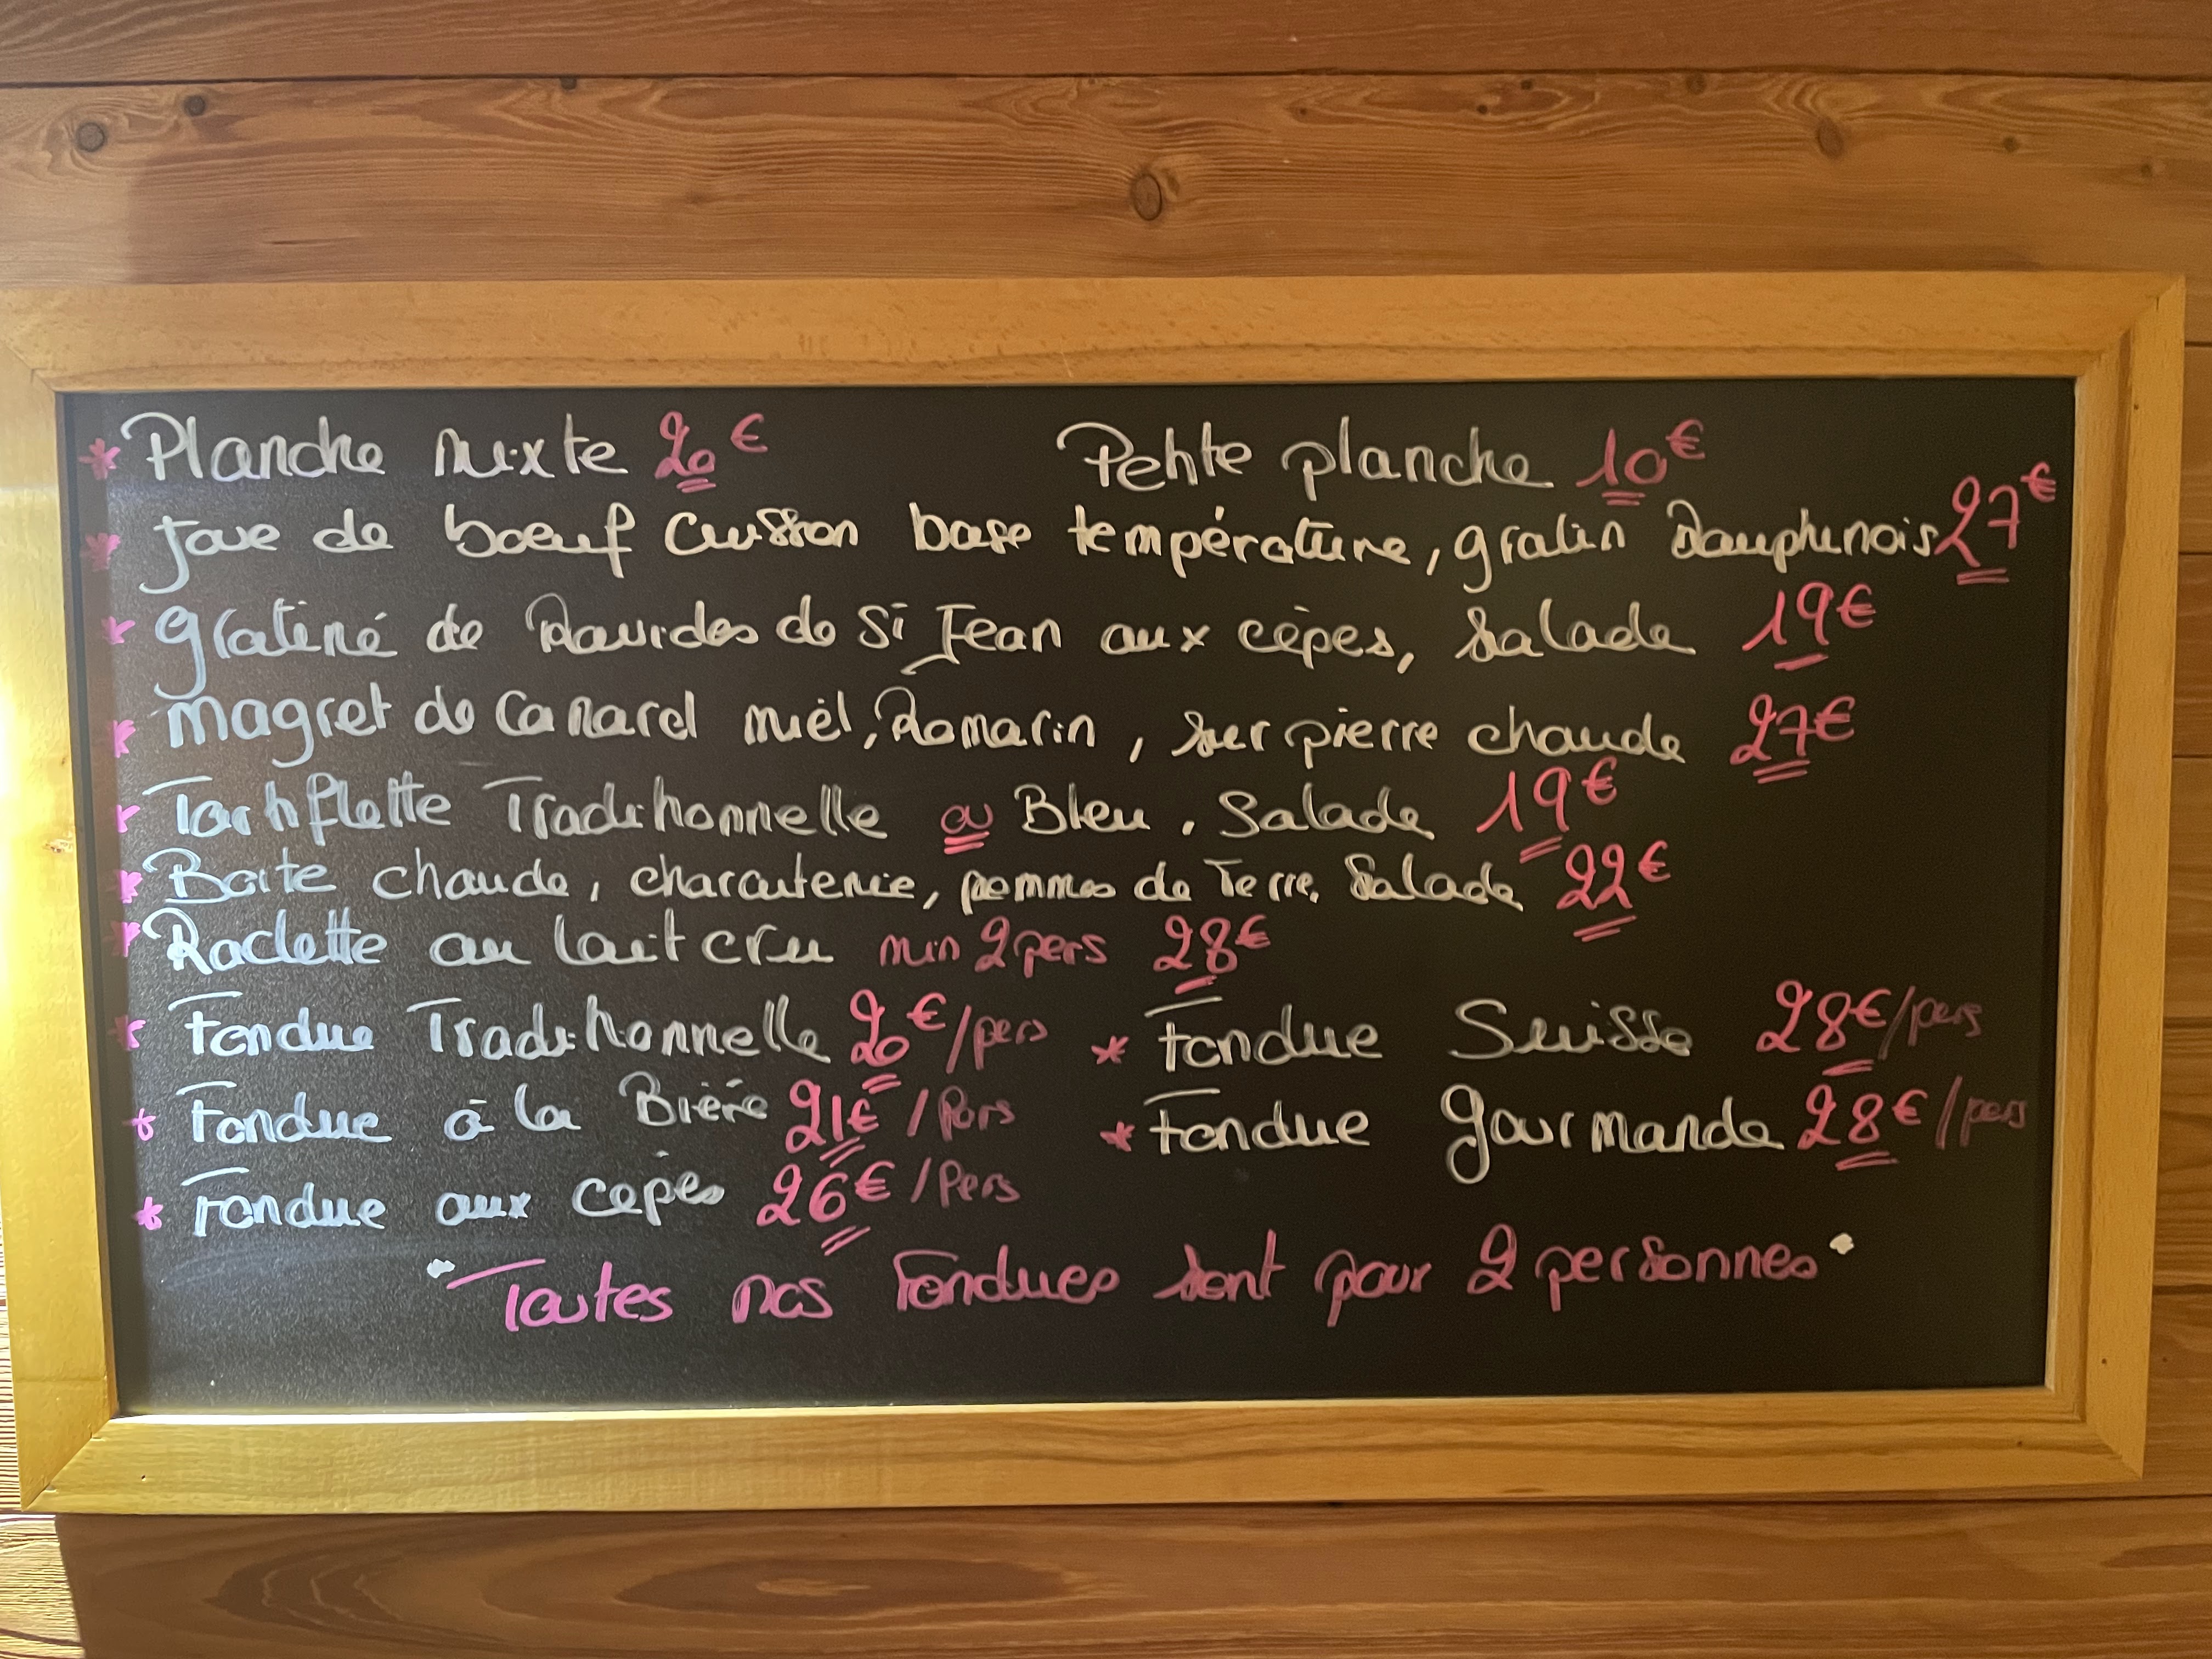 * Planche mixte 20€ Petite planche 10€
* Joue de boeuf Cuisson base température, gratin Dauphinois 27€
* gratiné de Ravioles de St Jean aux cèpes, Salade 19€
* Magret de Canard miel, Romarin, sur pierre chaude 27€
* Tartiflette Traditionnelle ou Bleu, Salade 19€
* Boite chaude, charcuterie, pommes de Terre, Salade 22€
* Raclette au lait cru min 2 pers 28€
* Fondue Traditionnelle 20€/pers * Fondue Suisse 28€/pers
* Fondue à la Bière 21€/Pers * Fondue gourmande 28€/pers
* Fondue aux cèpes 26€/Pers
"Toutes nos Fondues sont pour 2 personnes"